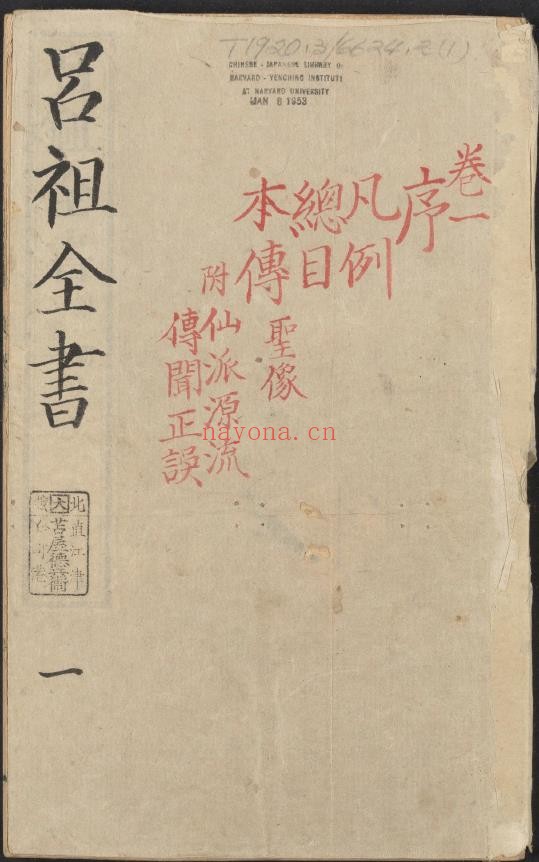 T1920.3/6624.2(1)
CHINESE - JAPANESE LIBRARY O
HARVARD - YENCHING INSTITUTE
AT HARVARD UNIVERSITY
JAN 8 1953
卷一
序
凡例
總目
本傳 聖像
附仙派源流
傳聞正誤
呂祖全書
一
nayona.cn
大